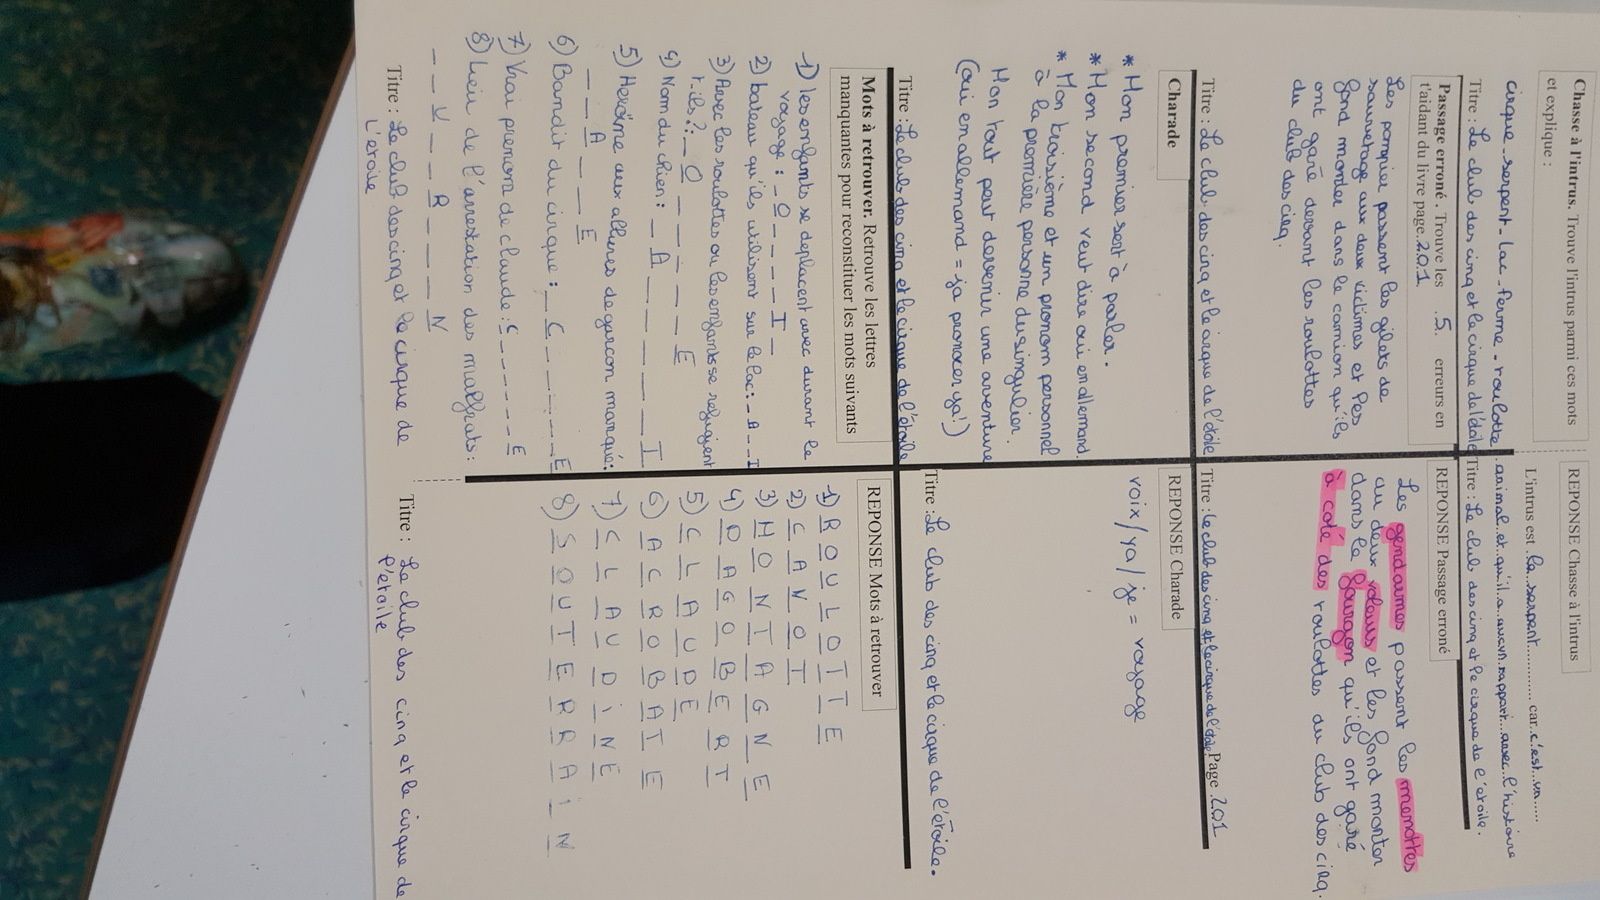 Chasse à l'intrus. Trouve l'intrus parmi ces mots
et explique :
cirque - serpent - lac - ferme - roulotte
Titre : Le club des cinq et le cirque de l'étoile
Passage erroné . Trouve les .5. erreurs en
t'aidant du livre page.201
Les pompier passent les gilets de
sauvetage aux deux victimes et les
fond monder dans le camion qu'ils
ont garé devant les roulottes
du club des cinq.
Titre : Le club des cinq et le cirque de l'étoile
Charade
* Mon premier sert à parler.
* Mon second veut dire oui en allemand.
* Mon troisième et un pronom personnel
à la première personne du singulier.
Mon tout peut devenir une aventure
(oui en allemand = ja prononcer ya!)
Titre : Le club des cinq et le cirque de l'étoile
Mots à retrouver. Retrouve les lettres
manquantes pour reconstituer les mots suivants
1) les enfants se deplacent avec durant le
voyage : _ O _ _ _ _ I _
2) bateau qu'ils utilisent sur le lac: _ A _ _ I
3) Avec les roulottes ou les enfants se refugient
t.ils?: _ O _ _ _ _ _ E
4) Nom du chien: _ A _ _ _ _ _ I
5) Heroïne aux allures de garçon manqué:
_ _ A _ _ E
6) Bandit du cirque : _ C _ _ _ _ _ E
7) Vrai prenom de claude: C _ _ _ _ _ E
8) Lieu de l'arrestation des malfrats:
_ _ U _ _ R _ _ _ N
Titre : Le club des cinq et le cirque de
L'étoile
REPONSE Chasse à l'intrus
L'intrus est .le..serpent............ car..c'est..un.....
.animal..et..qu'il..a..aucun..rapport...avec..l'histoire
Titre : Le club des cinq et le cirque de l'etoile.
REPONSE Passage erroné
Les gendarmes passent les menottes
au deux voleurs et les fond monter
dans le fourgon qu'ils ont garé
à coté des roulottes du club des cinq.
Titre : le club des cinq et le cirque de l'étoile Page .201
REPONSE Charade
voix/ya/je = voyage
Titre : Le club des cinq et le cirque de l'étoile.
REPONSE Mots à retrouver
1) R O U L O T T E
2) C A N O T
3) M O N T A G N E
4) D A G O B E R T
5) C L A U D E
6) A C R O B A T E
7) C L A U D i N E
8) S O U T E R R A i N
Titre : Le club des cinq et le cirque de
l'étoile